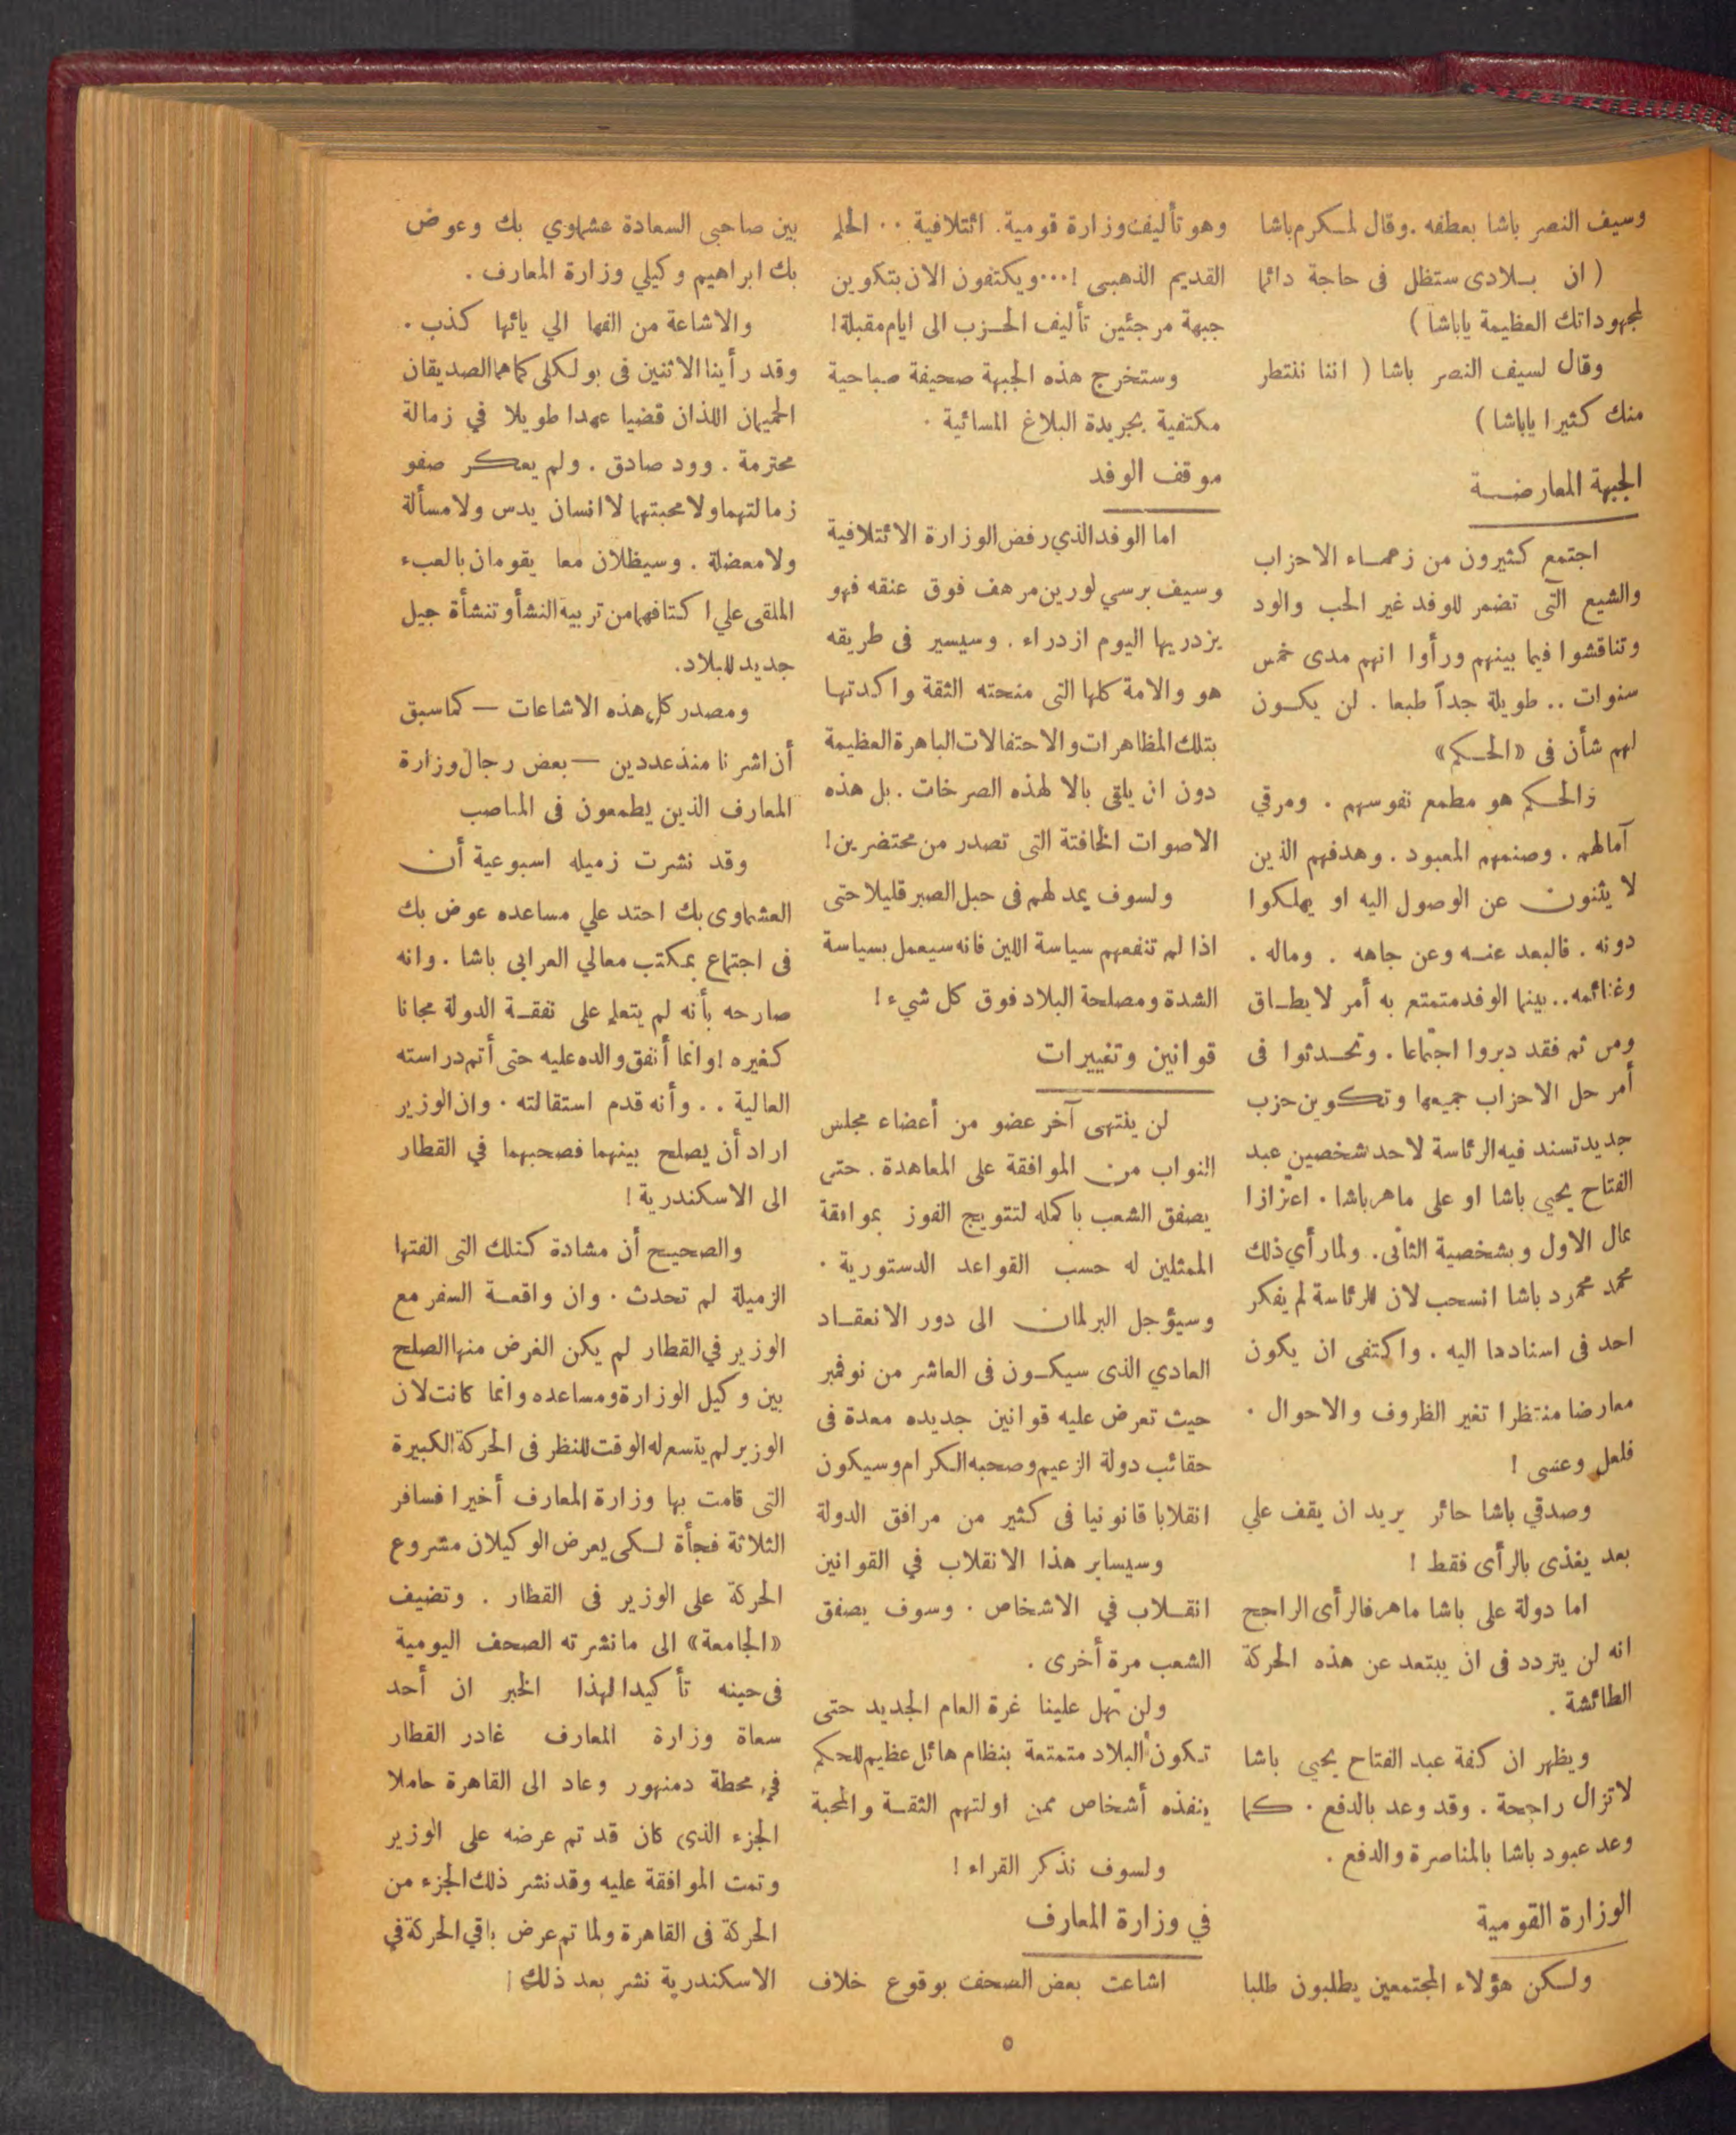 وسيف النصر باشا بعطفه . وقال لمكرم باشا
( ان بلادى ستظل فى حاجة دائما
لمجهوداتك العظيمة ياباشا )
وقال لسيف النصر باشا ( اننا ننتظر
منك كثيرا ياباشا )
الجبهة المعارضة
اجتمع كثيرون من زعماء الاحزاب
والشيع التى تضمر للوفد غير الحب والود
وتناقشوا فيما بينهم ورأوا انهم مدى خمس
سنوات .. طويلة جداً طبعا . لن يكون
لهم شأن فى «الحكم»
والحكم هو مطمع نفوسهم . ومرقي
آمالهم . وصنمهم المعبود . وهدفهم الذين
لا يثنون عن الوصول اليه او يهلكوا
دونه . فالبعد عنه وعن جاهه . وماله .
وغنائمه .. بينما الوفد متمتع به أمر لا يطاق
ومن ثم فقد دبروا اجتماعا . وتحدثوا فى
أمر حل الاحزاب جميعها وتكوين حزب
جديد تسند فيه الرئاسة لاحد شخصين عبد
الفتاح يحيي باشا او على ماهر باشا . اعتزازا
بمال الاول وبشخصية الثانى . ولما رأي ذلك
محمد محمرد باشا انسحب لان للرئاسة لم يفكر
احد فى اسنادها اليه . واكتفى ان يكون
معارضا منتظرا تغير الظروف والاحوال .
فلعل وعسى !
وصدقي باشا حائر يريد ان يقف علي
بعد يغذى بالرأى فقط !
اما دولة على باشا ماهر فالرأى الراجح
انه لن يتردد فى ان يبتعد عن هذه الحركة
الطائشة .
ويظهر ان كفة عبد الفتاح يحيي باشا
لاتزال راجحة . وقد وعد بالدفع . كما
وعد عبود باشا بالمناصرة والدفع .
الوزارة القومية
ولكن هؤلاء المجتمعين يطلبون طلبا
وهو تأليف وزارة قومية . ائتلافية .. الحلم
القديم الذهبى !... ويكتفون الان بتكوين
جبهة مرجئين تأليف الحزب الى ايام مقبلة !
وستخرج هذه الجبهة صحيفة صباحية
مكتفية بجريدة البلاغ المسائية .
موقف الوفد
اما الوفد الذي رفض الوزارة الائتلافية
وسيف برسي لورين مرهف فوق عنقه فهو
يزدريها اليوم ازدراء . وسيسير فى طريقه
هو والامة كلها التى منحته الثقة واكدتها
بتلك المظاهرات والاحتفالات الباهرة العظيمة
دون ان يلقى بالا لهذه الصرخات . بل هذه
الاصوات الخافتة التى تصدر من محتضرين !
ولسوف يمد لهم فى حبل الصبر قليلا حتى
اذا لم تنفعهم سياسة اللين فانه سيعمل بسياسة
الشدة ومصلحة البلاد فوق كل شيء !
قوانين وتغييرات
لن ينتهى آخر عضو من أعضاء مجلس
النواب من الموافقة على المعاهدة . حتى
يصفق الشعب باكمله لتتويج الفوز بموافقة
الممثلين له حسب القواعد الدستورية .
وسيؤجل البرلمان الى دور الانعقاد
العادي الذى سيكون فى العاشر من نوفمبر
حيث تعرض عليه قوانين جديده معدة فى
حقائب دولة الزعيم وصحبه الكرام وسيكون
انقلابا قانونيا فى كثير من مرافق الدولة
وسيساير هذا الانقلاب في القوانين
انقلاب في الاشخاص . وسوف يصفق
الشعب مرة أخرى .
ولن تهل علينا غرة العام الجديد حتى
تكون البلاد متمتعة بنظام هائل عظيم للحكم
ينفذه أشخاص ممن اولتهم الثقة والمحبة
ولسوف نذكر القراء !
في وزارة المعارف
اشاعت بعض الصحف بوقوع خلاف
بين صاحبى السعادة عشماوي بك وعوض
بك ابراهيم وكيلي وزارة المعارف .
والاشاعة من الفها الي يائها كذب .
وقد رأينا الاثنين فى بولكلى كما هما الصديقان
الحميمان اللذان قضيا عهدا طويلا في زمالة
محترمة . وود صادق . ولم يعكر صفو
زمالتهما ولا محبتهما لا انسان يدس ولا مسألة
ولا معضلة . وسيظلان معا يقومان بالعبء
الملقى علي اكتافهما من تربية النشأ وتنشأة جيل
جديد للبلاد.
ومصدر كل هذه الاشاعات — كما سبق
أن اشرنا منذ عددين — بعض رجال وزارة
المعارف الذين يطمعون فى المناصب
وقد نشرت زميله اسبوعية أن
العشماوى بك احتد علي مساعده عوض بك
فى اجتماع بمكتب معالي العرابى باشا . وانه
صارحه بأنه لم يتعلم على نفقة الدولة مجانا
كغيره ! وانما أنفق والده عليه حتى أتم دراسته
العالية .. وأنه قدم استقالته . وان الوزير
اراد أن يصلح بينهما فصحبهما في القطار
الى الاسكندرية !
والصحيح أن مشادة كتلك التى الفتها
الزميلة لم تحدث . وان واقعة السفر مع
الوزير في القطار لم يكن الغرض منها الصلح
بين وكيل الوزارة ومساعده وانما كانت لان
الوزير لم يتسع له الوقت للنظر فى الحركة الكبيرة
التى قامت بها وزارة المعارف أخيرا فسافر
الثلاثة فجأة لكى يعرض الوكيلان مشروع
الحركة على الوزير فى القطار . وتضيف
«الجامعة» الى ما نشرته الصحف اليومية
فى حينه تأكيدا لهذا الخبر ان أحد
سعاة وزارة المعارف غادر القطار
في محطة دمنهور وعاد الى القاهرة حاملا
الجزء الذى كان قد تم عرضه على الوزير
وتمت الموافقة عليه وقد نشر ذلك الجزء من
الحركة فى القاهرة ولما تم عرض باقي الحركة في
الاسكندرية نشر بعد ذلك !
٥